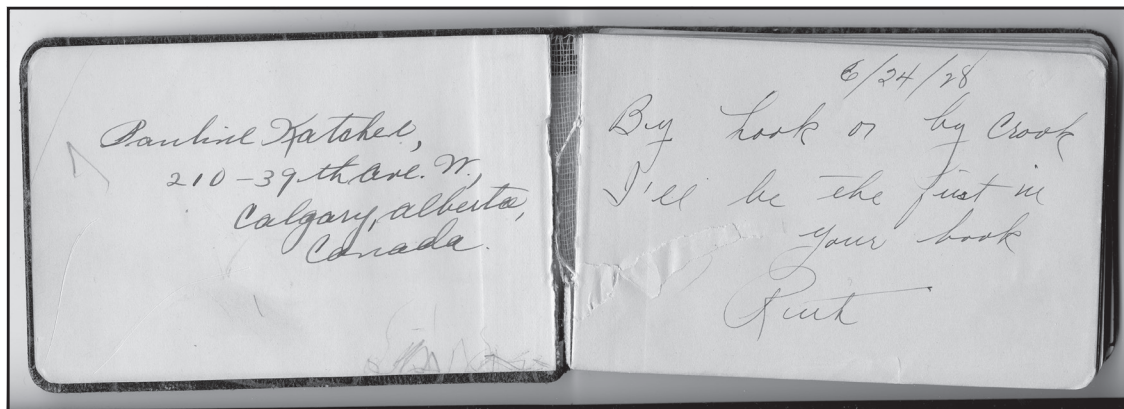 Pauline Katchel,
210-39th Ave. W.,
Calgary, Alberta,
Canada.
6/24/28
By hook or by Crook
I'll be the first in
your book
Ruth